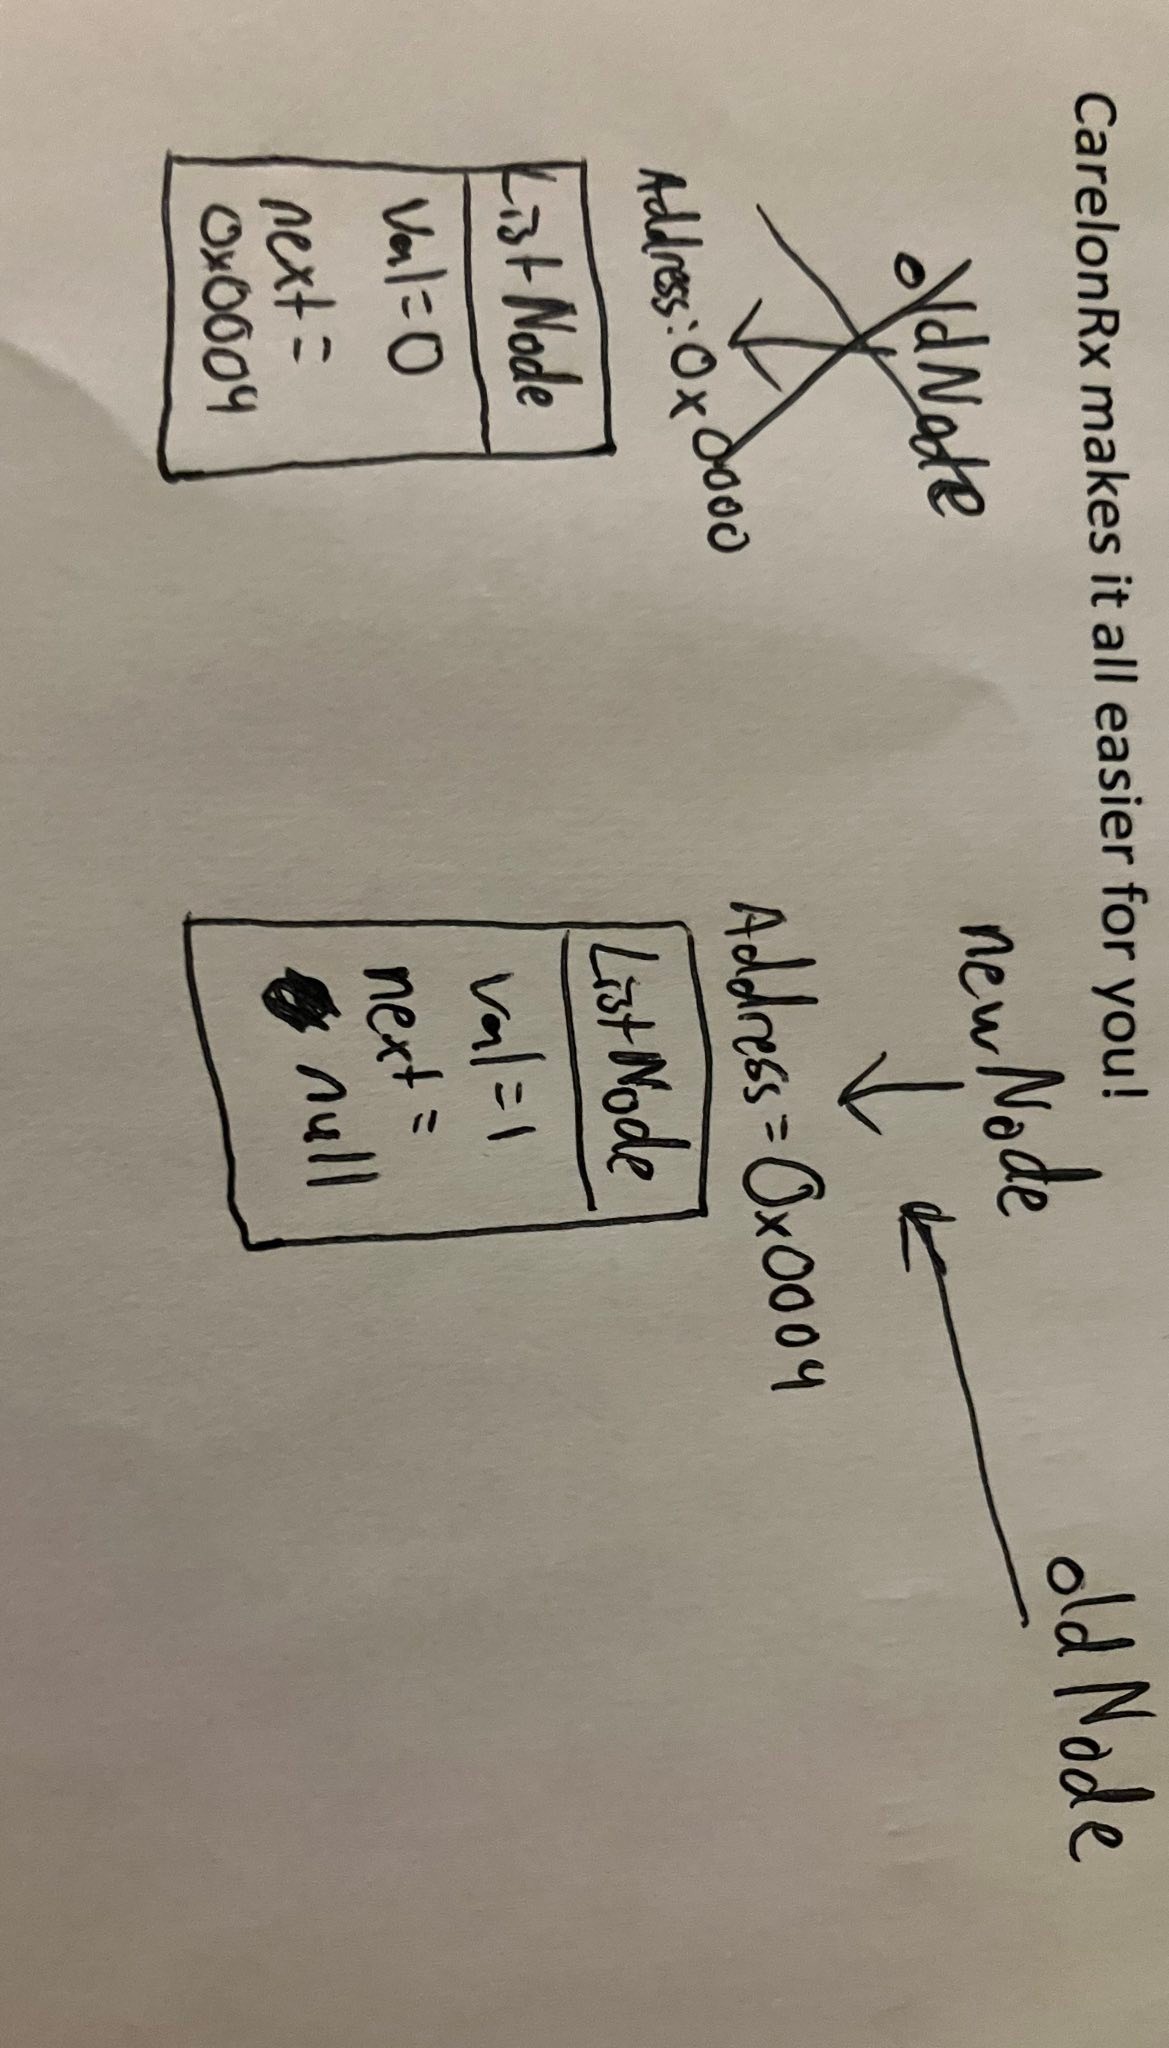 CarelonRx makes it all easier for you!
oldNode
Address: 0x0000
ListNode
val=0
next=
0x0004
newNode
Address=0x0004
ListNode
val=1
next=
null
oldNode